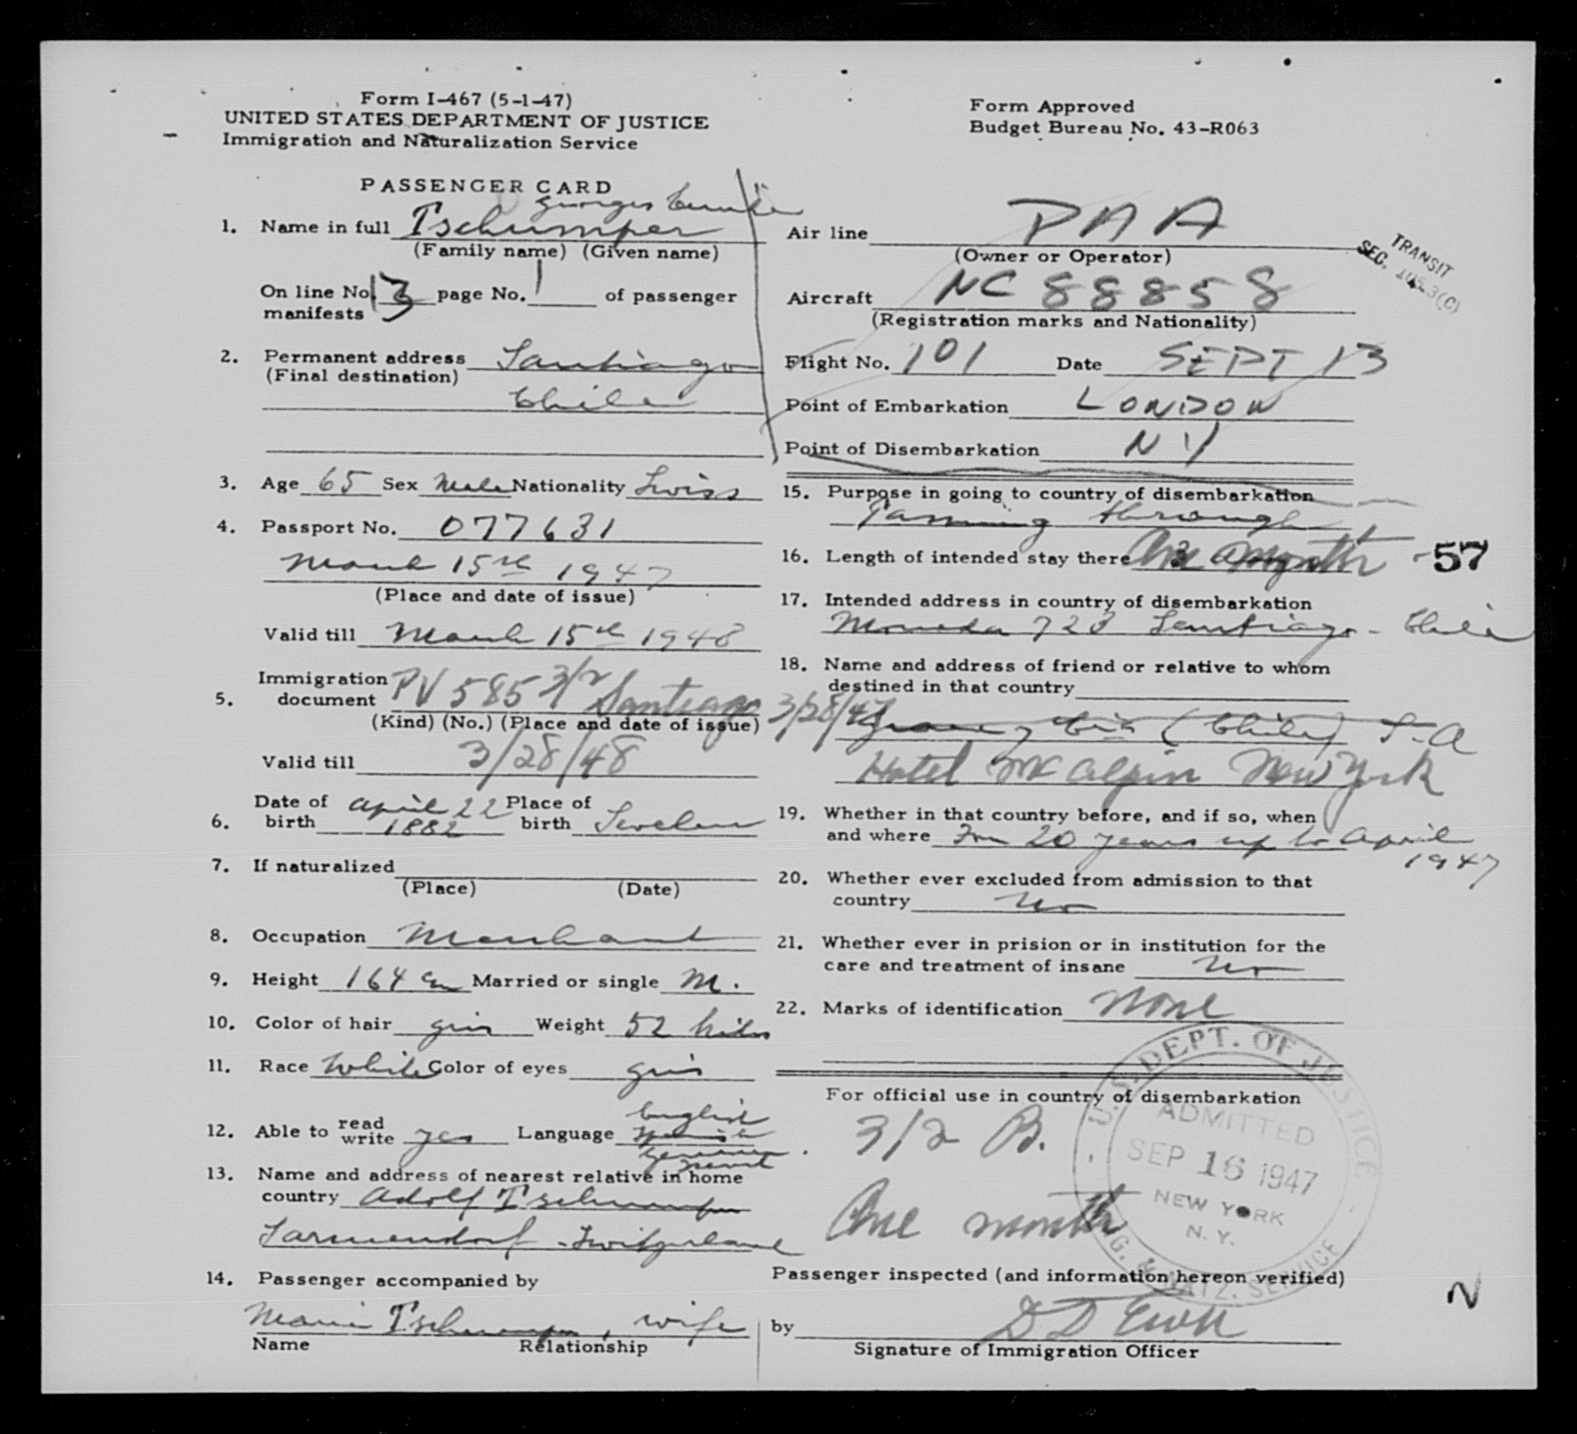 Form I-467 (5-1-47)
UNITED STATES DEPARTMENT OF JUSTICE
Immigration and Naturalization Service
PASSENGER CARD
1. Name in full Tschumper Georges
(Family name) (Given name)
On line No. 13 page No. 1 of passenger
manifests
2. Permanent address Santiago
(Final destination)
Chile
3. Age 65 Sex Male Nationality Swiss
4. Passport No. 077631
March 15th 1947
(Place and date of issue)
Valid till March 15th 1948
5. Immigration
document PV 585 3/2 Santiago 3/28/47
(Kind) (No.) (Place and date of issue)
Valid till 3/28/48
6. Date of birth April 22 1882 Place of birth Sevelen
7. If naturalized
(Place) (Date)
8. Occupation Merchant
9. Height 164 cm Married or single M.
10. Color of hair gris Weight 52 kilos
11. Race White Color of eyes gris
12. Able to read write yes Language English Spanish German
13. Name and address of nearest relative in home
country Adolf Tschumper
Sarmendorf - Switzerland
14. Passenger accompanied by
Marie Tschumper, wife
Name Relationship
Form Approved
Budget Bureau No. 43-R063
Air line PAA
(Owner or Operator)
TRANSIT
SEC.
Aircraft NC 88858
(Registration marks and Nationality)
Flight No. 101 Date SEPT 13
Point of Embarkation LONDON
Point of Disembarkation NY
15. Purpose in going to country of disembarkation
Passing through
16. Length of intended stay there One month
-57
17. Intended address in country of disembarkation
Moneda 723 Santiago - Chile
18. Name and address of friend or relative to whom
destined in that country
(Chile) S-A
Hotel McAlpin New York
19. Whether in that country before, and if so, when
and where For 20 years up to April
1947
20. Whether ever excluded from admission to that
country No
21. Whether ever in prision or in institution for the
care and treatment of insane No
22. Marks of identification None
For official use in country of disembarkation
3/2 B.
One month
U.S. DEPT. OF JUSTICE
ADMITTED
SEP 16 1947
NEW YORK
N.Y.
IMMIG. & NATZ. SERVICE
Passenger inspected (and information hereon verified)
N
by D D Ewen
Signature of Immigration Officer